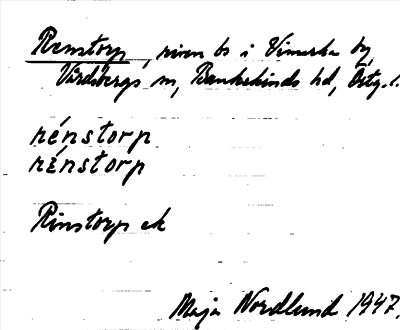 Renstorp, riven bs i Vimarka by,
Vårdsbergs sn, Bankekinds hd, Östg. l.
rénstorp
rénstorp
Rinstorp ek
Maja Nordlund 1947.